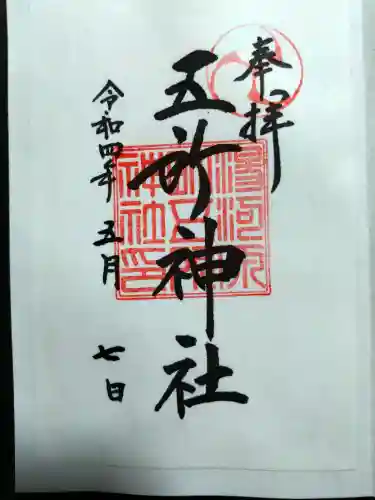 奉拝
五所神社
令和四年五月七日